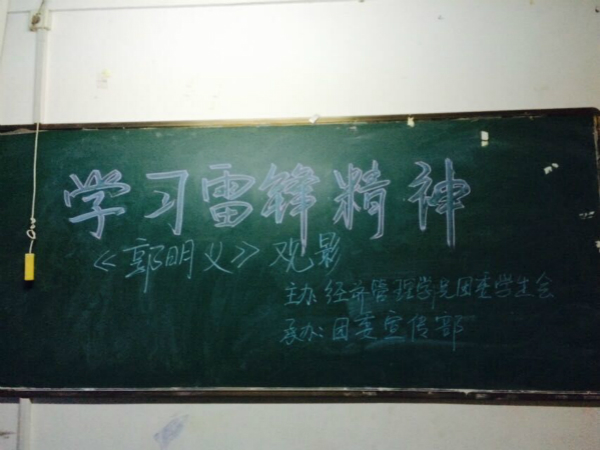 学习雷锋精神
《郭明义》观影
主办:经济管理学院团委学生会
承办:团委宣传部